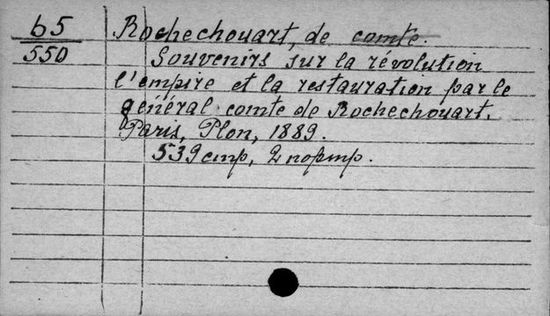 б5
550
Rochechouart, de comte.
Souvenirs sur la révolution
l'empire et la restauration par le
général comte de Rochechouart.
Paris, Plon, 1889.
539 стр, 2 порmр.